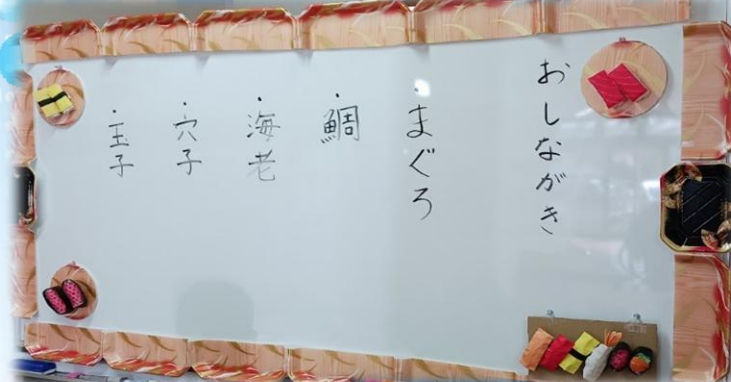 おしながき
・まぐろ
・鯛
・海老
・穴子
・玉子